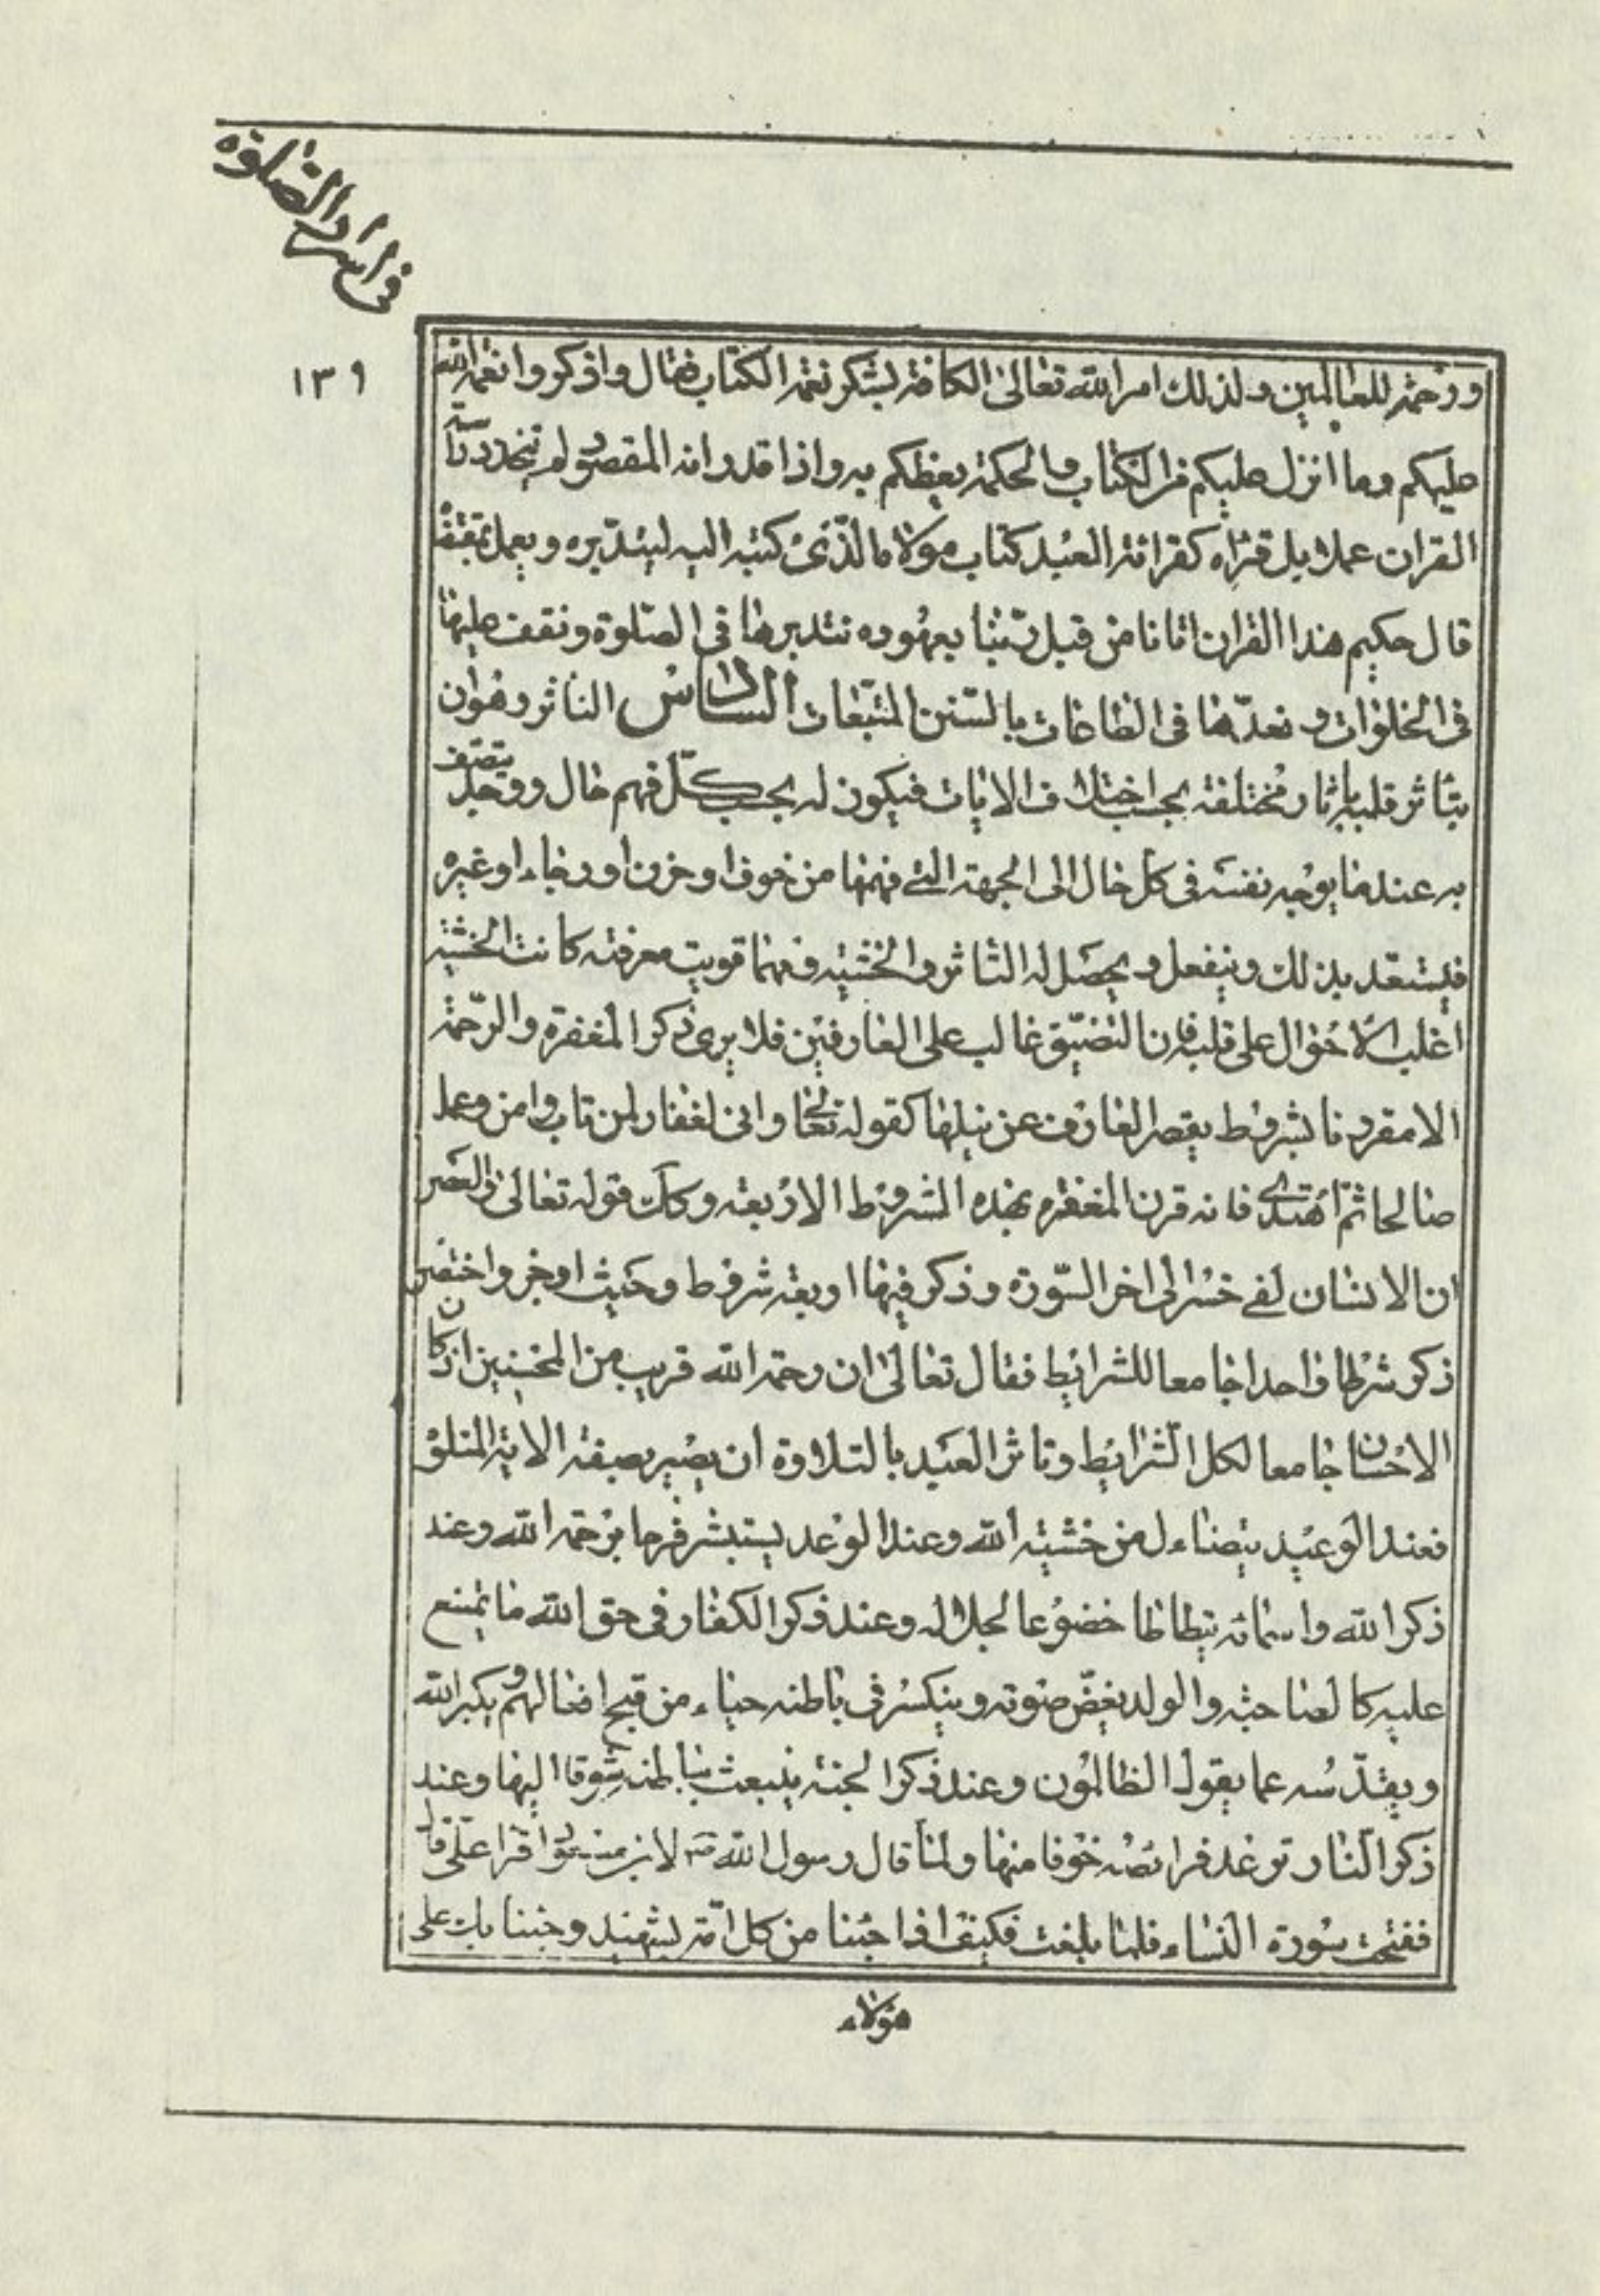 فى اسرار الصلوة
١٣٩
ورحمة للعالمين ولذلك امر الله تعالى الكافة بشكر نعمة الكتاب فقال واذكروا نعمة الله
عليكم وما انزل عليكم من الكتاب والحكمة يعظكم به واذا قدر انه المقصود لم يتخذ دراسة
القران عملا بل قراه كقرائة العبد كتاب مولاه الذى كتبه اليه ليتدبره ويعمل بمقتضاه
قال حكيم هذا القران اتانا من قبل ربنا بعهوده نتدبرها فى الصلوة ونقف عليها
فى الخلوات ونعدها فى الطاعات بالسنن المتبعات السادس التاثر وهو ان
يتاثر قلبه باثار مختلفة بحسب اختلاف الايات فيكون له بحسب كل فهم حال ووجد يتصف
به عندما يوجه نفسه فى كل حال الى الجهة التى فهمها من خوف او حزن او رجاء او غيره
فيستعد بذلك وينفعل ويحصل له التاثر والخشية ومهما قويت معرفته كانت الخشية
اغلب الاحوال على قلبه فان التضيق غالب على العارفين فلا يرى ذكر المغفرة والرحمة
الا مقرونا بشروط يقصر العارف عن نيلها كقوله تعالى وانى لغفار لمن تاب وامن وعمل
صالحا ثم اهتدى فانه قرن المغفرة بهذه الشروط الاربعة وكك قوله تعالى والعصر
ان الانسان لفى خسر الى اخر السورة وذكر فيها اربعة شروط وحيث اوجز واختصر
ذكر شرطا واحدا جامعا للشرايط فقال تعالى ان رحمة الله قريب من المحسنين اذ كان
الاحسان جامعا لكل الشرايط وتاثر العبد بالتلاوة ان يصير بصفة الاية المتلوة
فعند الوعيد يتضاءل من خشية الله وعند الوعد يستبشر فرحا برحمة الله وعند
ذكر الله واسمائه يتطاطا خضوعا لجلاله وعند ذكر الكفار فى حق الله ما يمتنع
عليه كالصاحبة والولد يغض صوته وينكسر فى باطنه حياء من قبح افعالهم ويكبر الله
ويقدسه عما يقول الظالمون وعند ذكر الجنة ينبعث بباطنه شوقا اليها وعند
ذكر النار ترتعد فرائصه خوفا منها ولما قال رسول الله ص لابن مسعود اقرا على قال
ففتحت سورة النساء فلما بلغت فكيف اذا جئنا من كل امة بشهيد وجئنا بك على
هؤلاء